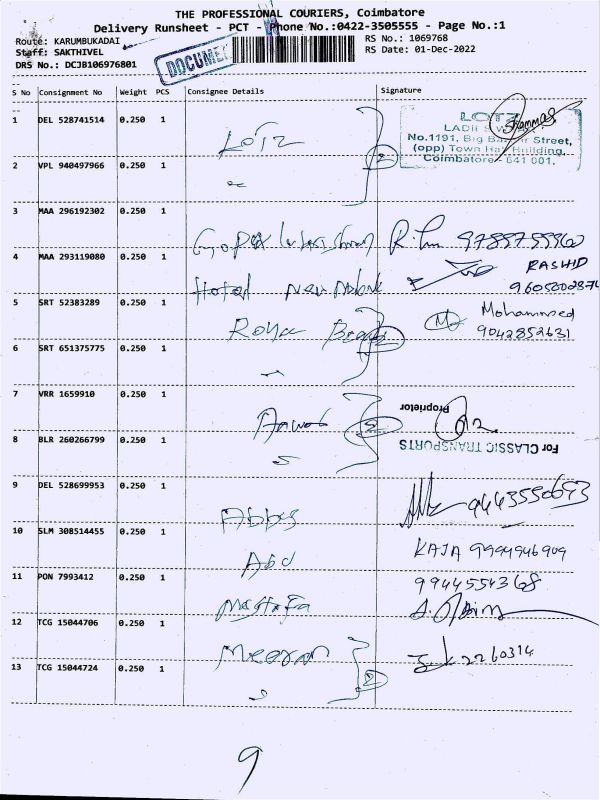 THE PROFESSIONAL COURIERS, Coimbatore
Delivery Runsheet - PCT - Phone No.:0422-3505555 - Page No.:1
Route: KARUMBUKADAI
Staff: SAKTHIVEL
DRS No.: DCJB106976801
DOCUME
RS No.: 1069768
RS Date: 01-Dec-2022
S No Consignment No Weight PCS Consignee Details Signature
1 DEL 528741514 0.250 1 LOTZ
LOTZ
No.1191, Big Bazaar Street,
(opp) Town Hall Building,
Coimbatore - 641 001.
2 VPL 940497966 0.250 1 2
3 MAA 296192302 0.250 1
4 MAA 293119080 0.250 1 Hotel New
RASHID
5 SRT 52383289 0.250 1 Royal
Mohammed
9042852631
6 SRT 651375775 0.250 1 2
7 VRR 1659910 0.250 1
Proprietor
8 BLR 260266799 0.250 1 2
For CLASSIC TRANSPORTS
9 DEL 528699953 0.250 1 Abbas 9443550693
10 SLM 308514455 0.250 1 Abd KAJA 9994946909
11 PON 7993412 0.250 1 Mustafa 9944554368
12 TCG 15044706 0.250 1 Meeran
13 TCG 15044724 0.250 1 2 2260314
9